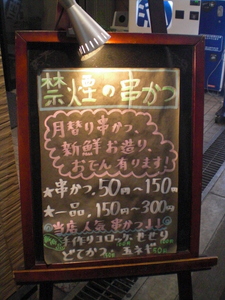 禁煙の串かつ
月替り串かつ、
新鮮お造り、
おでん有ります!
★串かつ、50円～150円
★一品、150円～300円
◎当店人気串かつ↓↓
手作りコロッケ、せせり
どてかつ 玉ネギ